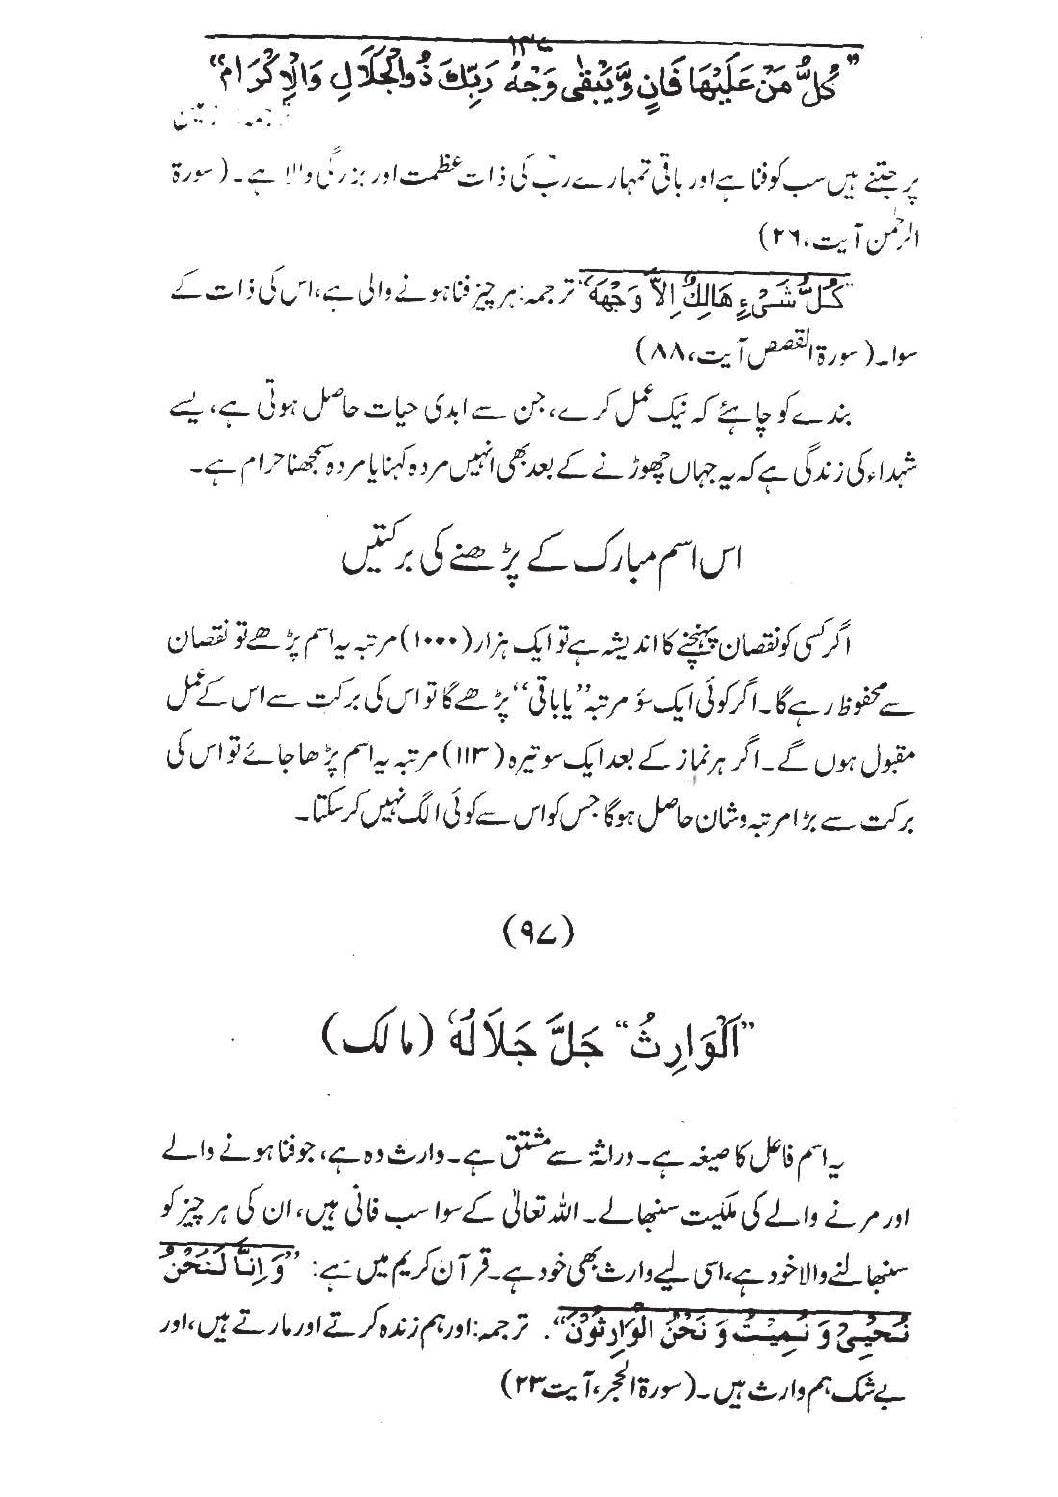 ۱۳۷
"كُلُّ مَنْ عَلَيْهَا فَانٍ وَّيَبْقٰى وَجْهُ رَبِّكَ ذُوالْجَلَالِ وَالْاِكْرَام"
پر جتنے ہیں سب کو فنا ہے اور باقی تمہارے ربّ کی ذات عظمت اور بزرگی والا ہے۔(سورۃ
الرحمٰن آیت،۲۶)
"كُلُّ شَىْءٍ هَالِكٌ اِلاَّ وَجْهَهٗ" ترجمہ: ہر چیز فنا ہونے والی ہے، اس کی ذات کے
سوا۔(سورۃ القصص آیت،۸۸)
بندے کو چاہئے کہ نیک عمل کرے، جن سے ابدی حیات حاصل ہوتی ہے، یسے
شہداء کی زندگی ہے کہ یہ جہاں چھوڑنے کے بعد بھی انہیں مردہ کہنا یا مردہ سمجھنا حرام ہے۔
اس اسم مبارک کے پڑھنے کی برکتیں
اگر کسی کو نقصان پہنچنے کا اندیشہ ہے تو ایک ہزار (۱۰۰۰) مرتبہ یہ اسم پڑھے تو نقصان
سے محفوظ رہے گا۔ اگر کوئی ایک سؤ مرتبہ "یا باقی" پڑھے گا تو اس کی برکت سے اس کے عمل
مقبول ہوں گے۔ اگر ہر نماز کے بعد ایک سو تیرہ (۱۱۳) مرتبہ یہ اسم پڑھا جائے تو اس کی
برکت سے بڑا مرتبہ و شان حاصل ہوگا جس کو اس سے کوئی الگ نہیں کرسکتا۔
(۹۷)
"اَلْوَارِثُ" جَلَّ جَلَالُهٗ (مالک)
یہ اسم فاعل کا صیغہ ہے۔ وراثۃ سے مشتق ہے۔ وارث وہ ہے، جو فنا ہونے والے
اور مرنے والے کی ملکیت سنبھالے۔ اللہ تعالیٰ کے سوا سب فانی ہیں، ان کی ہر چیز کو
سنبھالنے والا خود ہے، اسی لیے وارث بھی خود ہے۔ قرآن کریم میں ہے: "وَاِنَّا لَنَحْنُ
نُحْيِىْ وَنُمِيْتُ وَنَحْنُ الْوَارِثُوْنَ". ترجمہ: اور ہم زندہ کرتے اور مارتے ہیں، اور
بے شک ہم وارث ہیں۔ (سورۃ الحجر، آیت ۲۳)